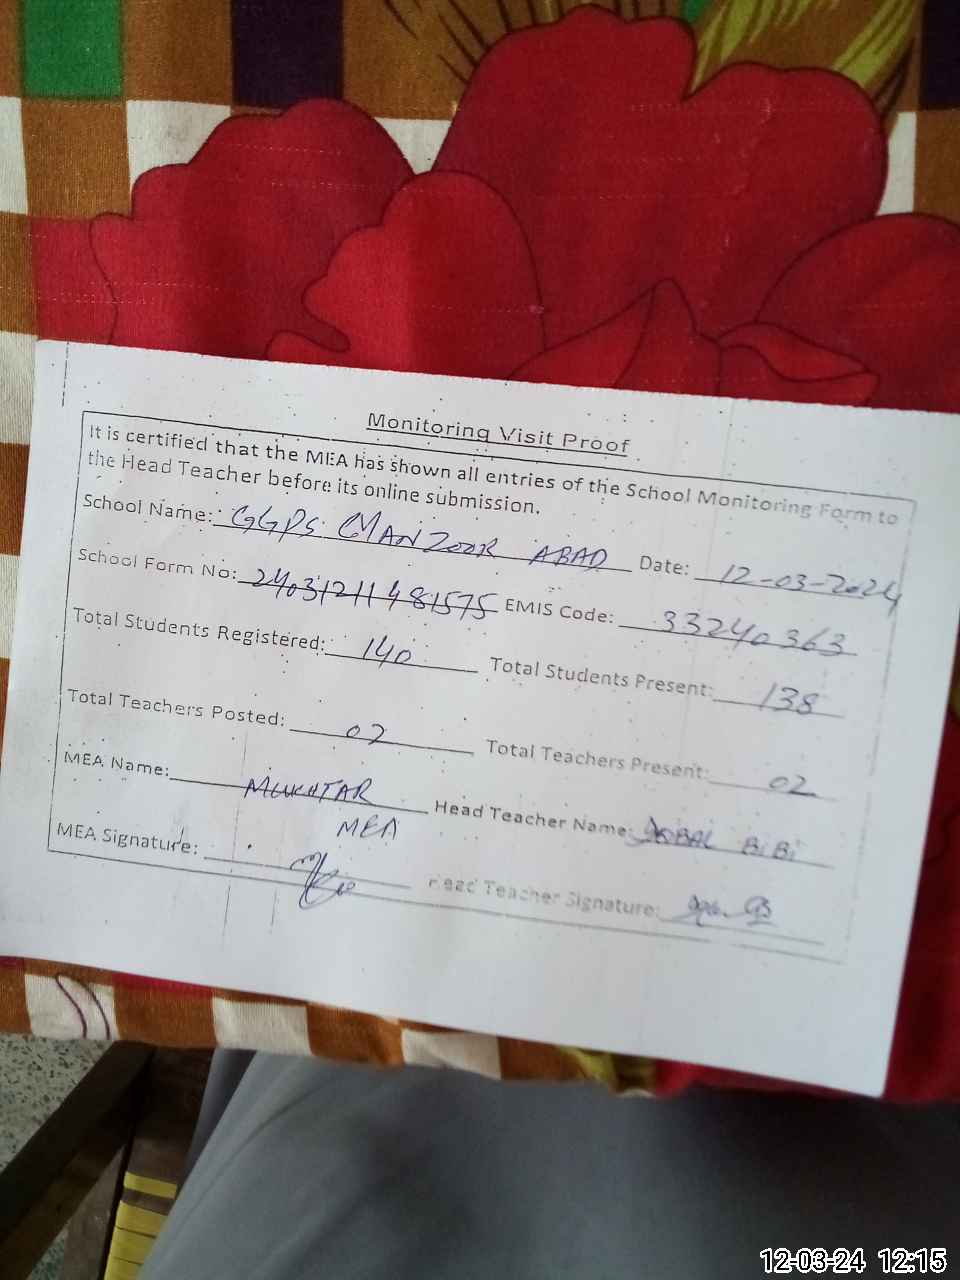 Monitoring Visit Proof
It is certified that the MEA has shown all entries of the School Monitoring Form to
the Head Teacher before its online submission.
School Name: GGPS MANZOOR ABAD Date: 12-03-2024
School Form No: 24031211481575 EMIS Code: 33240363
Total Students Registered: 140 Total Students Present: 138
Total Teachers Posted: 02 Total Teachers Present: 02
MEA Name: MUKHTAR Head Teacher Name: IQBAL BiBi
MEA
MEA Signature: Head Teacher Signature:
12-03-24 12:15